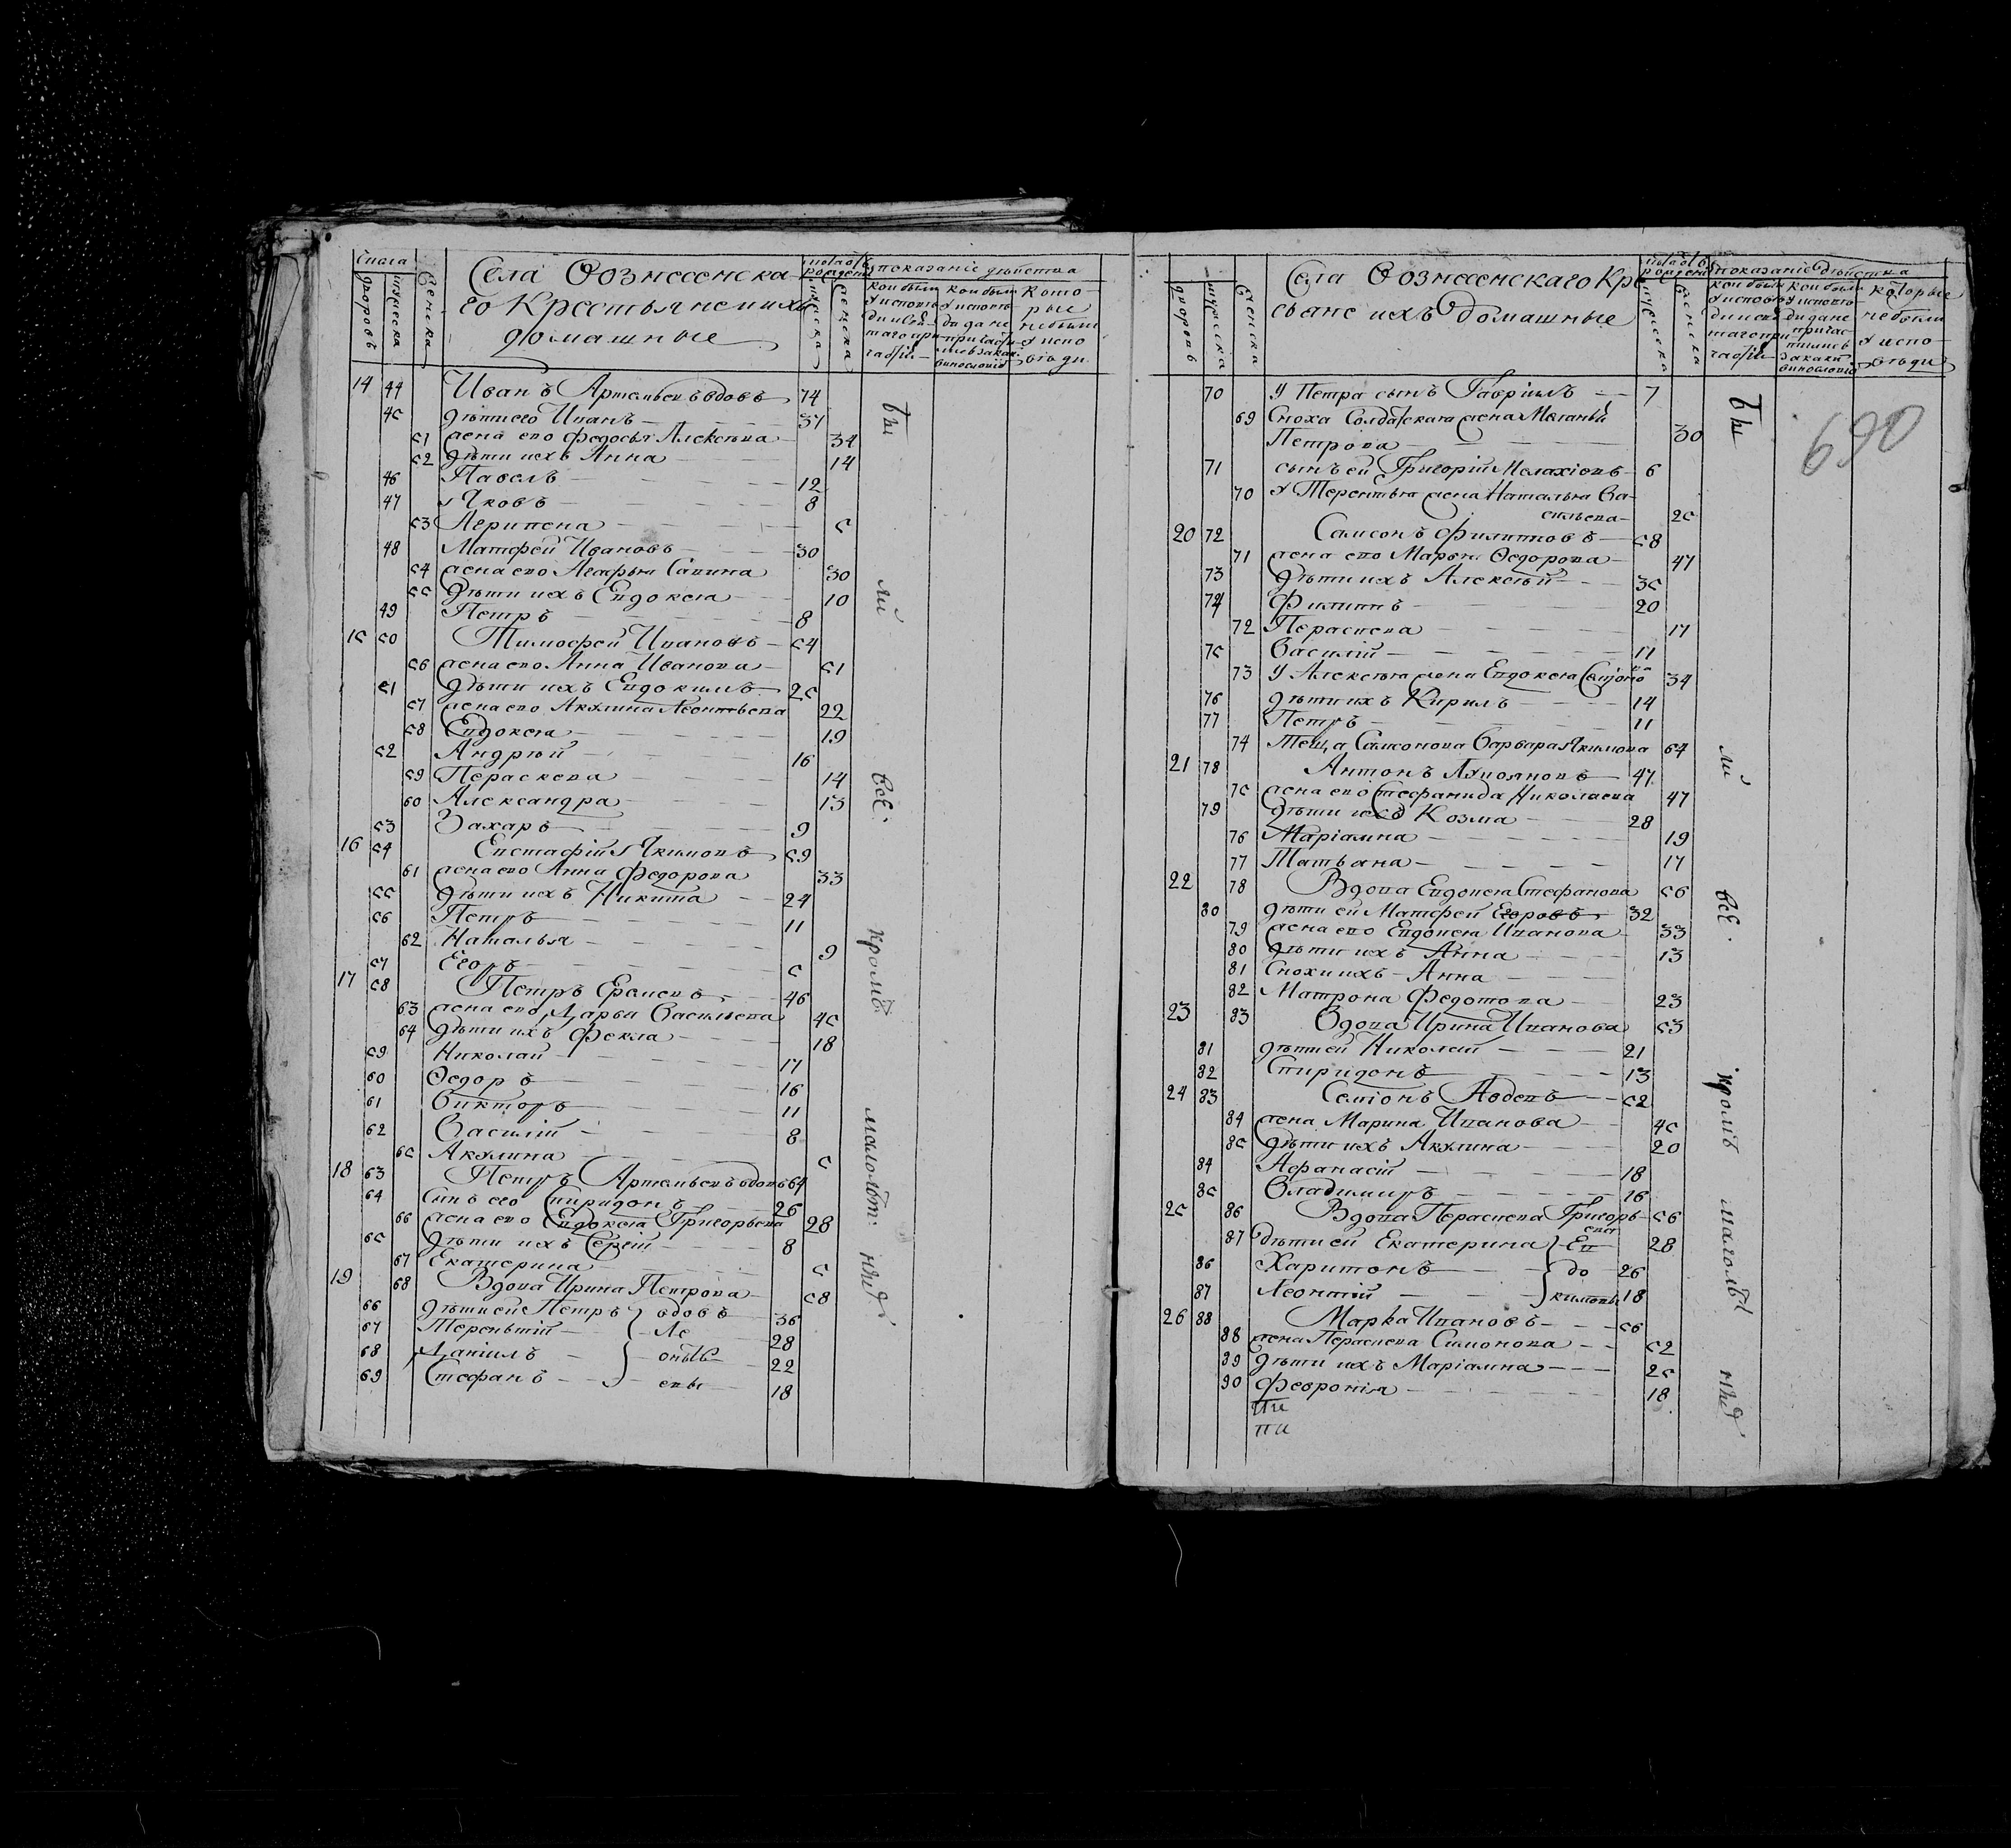 Числа
дворовъ
мужеска
женска
Села Вознесенска-
го Крестьяне и ихъ
домашные
мужеска
женска
показаніе действа
кои были
у исповѣ
кои были
у исповѣ
Кото
рые
небыли
у испо
вѣди
14 44 Иванъ Артемьевъ вдовъ 74
45 дѣти его Иванъ 37
51 жена его Федосья Алексѣева 34
52 дѣти ихъ Анна 14
46 Павелъ 12
47 Яковъ 8
53 Агрипена 5
48 Матфей Ивановъ 30
54 жена его Агафья Савина 30
55 дѣти ихъ Евдокея 10
49 Петръ 8
15 50 Тимофей Ивановъ 54
56 жена его Анна Иванова 51
51 дѣти ихъ Евдокимъ 25
57 жена его Акулина Леонтьева 22
58 Евдокея 19
52 Андрей 16
59 Пераскева 14
60 Александра 13
53 Захаръ 9
16 54 Евстафій Якимовъ 59
61 жена его Анна Федорова 33
55 дѣти ихъ Никита 24
56 Петръ 11
62 Наталья 9
57 Егоръ 5
17 58 Петръ Еремевъ 46
63 жена его Дарья Васильева 45
64 дѣти ихъ Фекла 18
59 Николай 17
60 Ѳедоръ 16
61 Викторъ 11
62 Василій 8
65 Акулина 5
18 63 Петръ Артемьевъ вдовъ 64
64 Сынъ его Спиридонъ 26
66 жена его Евдокея Григорьева 28
65 дѣти ихъ Сергій 8
67 Екатерина 5
19 68 Вдова Ирина Петрова 58
66 дѣти ей Петръ вдовъ 36
67 Терентій Ле 28
68 Даніилъ онтье 22
69 Стефанъ евы 18
Бы
ли
всѣ
кромѣ
малолѣт:
дворовъ
мужеска
женска
Села Вознесенскаго Кре
сьяне ихъ домашные
мужеска
женска
показаніе действа
кои были
у исповѣ
кои были
у исповѣ
которые
небыли
у испо-
вѣди
70 У Петра сынъ Гавриилъ 7
69 Сноха Солдатская жена Меланья
Петрова 30
71 сынъ ей Григорій Малахіевъ 6
70 У Терентья жена Наталья Ва-
сильева 25
20 72 Самсонъ Филиповъ 58
71 жена его Марья Ѳедорова 47
73 дѣти ихъ Алексей 35
74 Филипъ 20
72 Пераскева 17
75 Василій 11
73 У Алексея жена Евдокея Семіоно
ва 34
76 дѣти ихъ Кирилъ 14
77 Петръ 11
74 Теща Самсонова Варвара Якимова 64
21 78 Антонъ Лукояновъ 47
75 жена его Стефанида Николаева 47
79 дѣти ихъ Козма 28
76 Маріамна 19
77 Татьяна 17
22 78 Вдова Евдокея Стефанова 56
80 дѣти ей Матфей Егоровъ 32
79 жена его Евдокея Иванова 33
80 дѣти ихъ Анна 13
81 Снохи ихъ Анна
82 Матрона Федотова 23
23 83 Вдова Ирина Иванова 53
81 дѣти ей Николай 21
82 Спиридонъ 13
24 83 Семіонъ Авдевъ 52
84 жена Марина Иванова 45
85 дѣти ихъ Акулина 20
84 Афанасій 18
85 Владимиръ 16
25 86 Вдова Пераскева Григорь
ева 56
87 дѣти ей Екатерина Ев 28
86 Харитонъ до 26
87 Леонтій кимовы 18
26 88 Марка Ивановъ 56
88 жена Пераскева Симонова 52
89 дѣти ихъ Маріамна 25
90 Февронія 18
Бы
ли
всѣ.
кромѣ
малолѣ
690